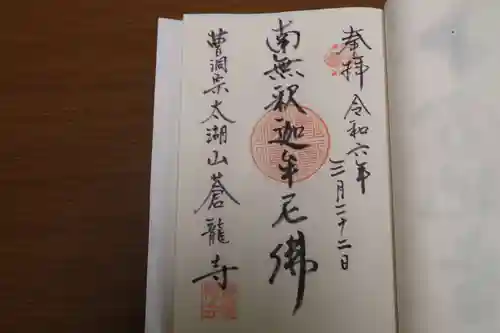 奉拝 令和六年
三月二十二日
南無釈迦牟尼佛
曹洞宗 太湖山 蒼龍寺